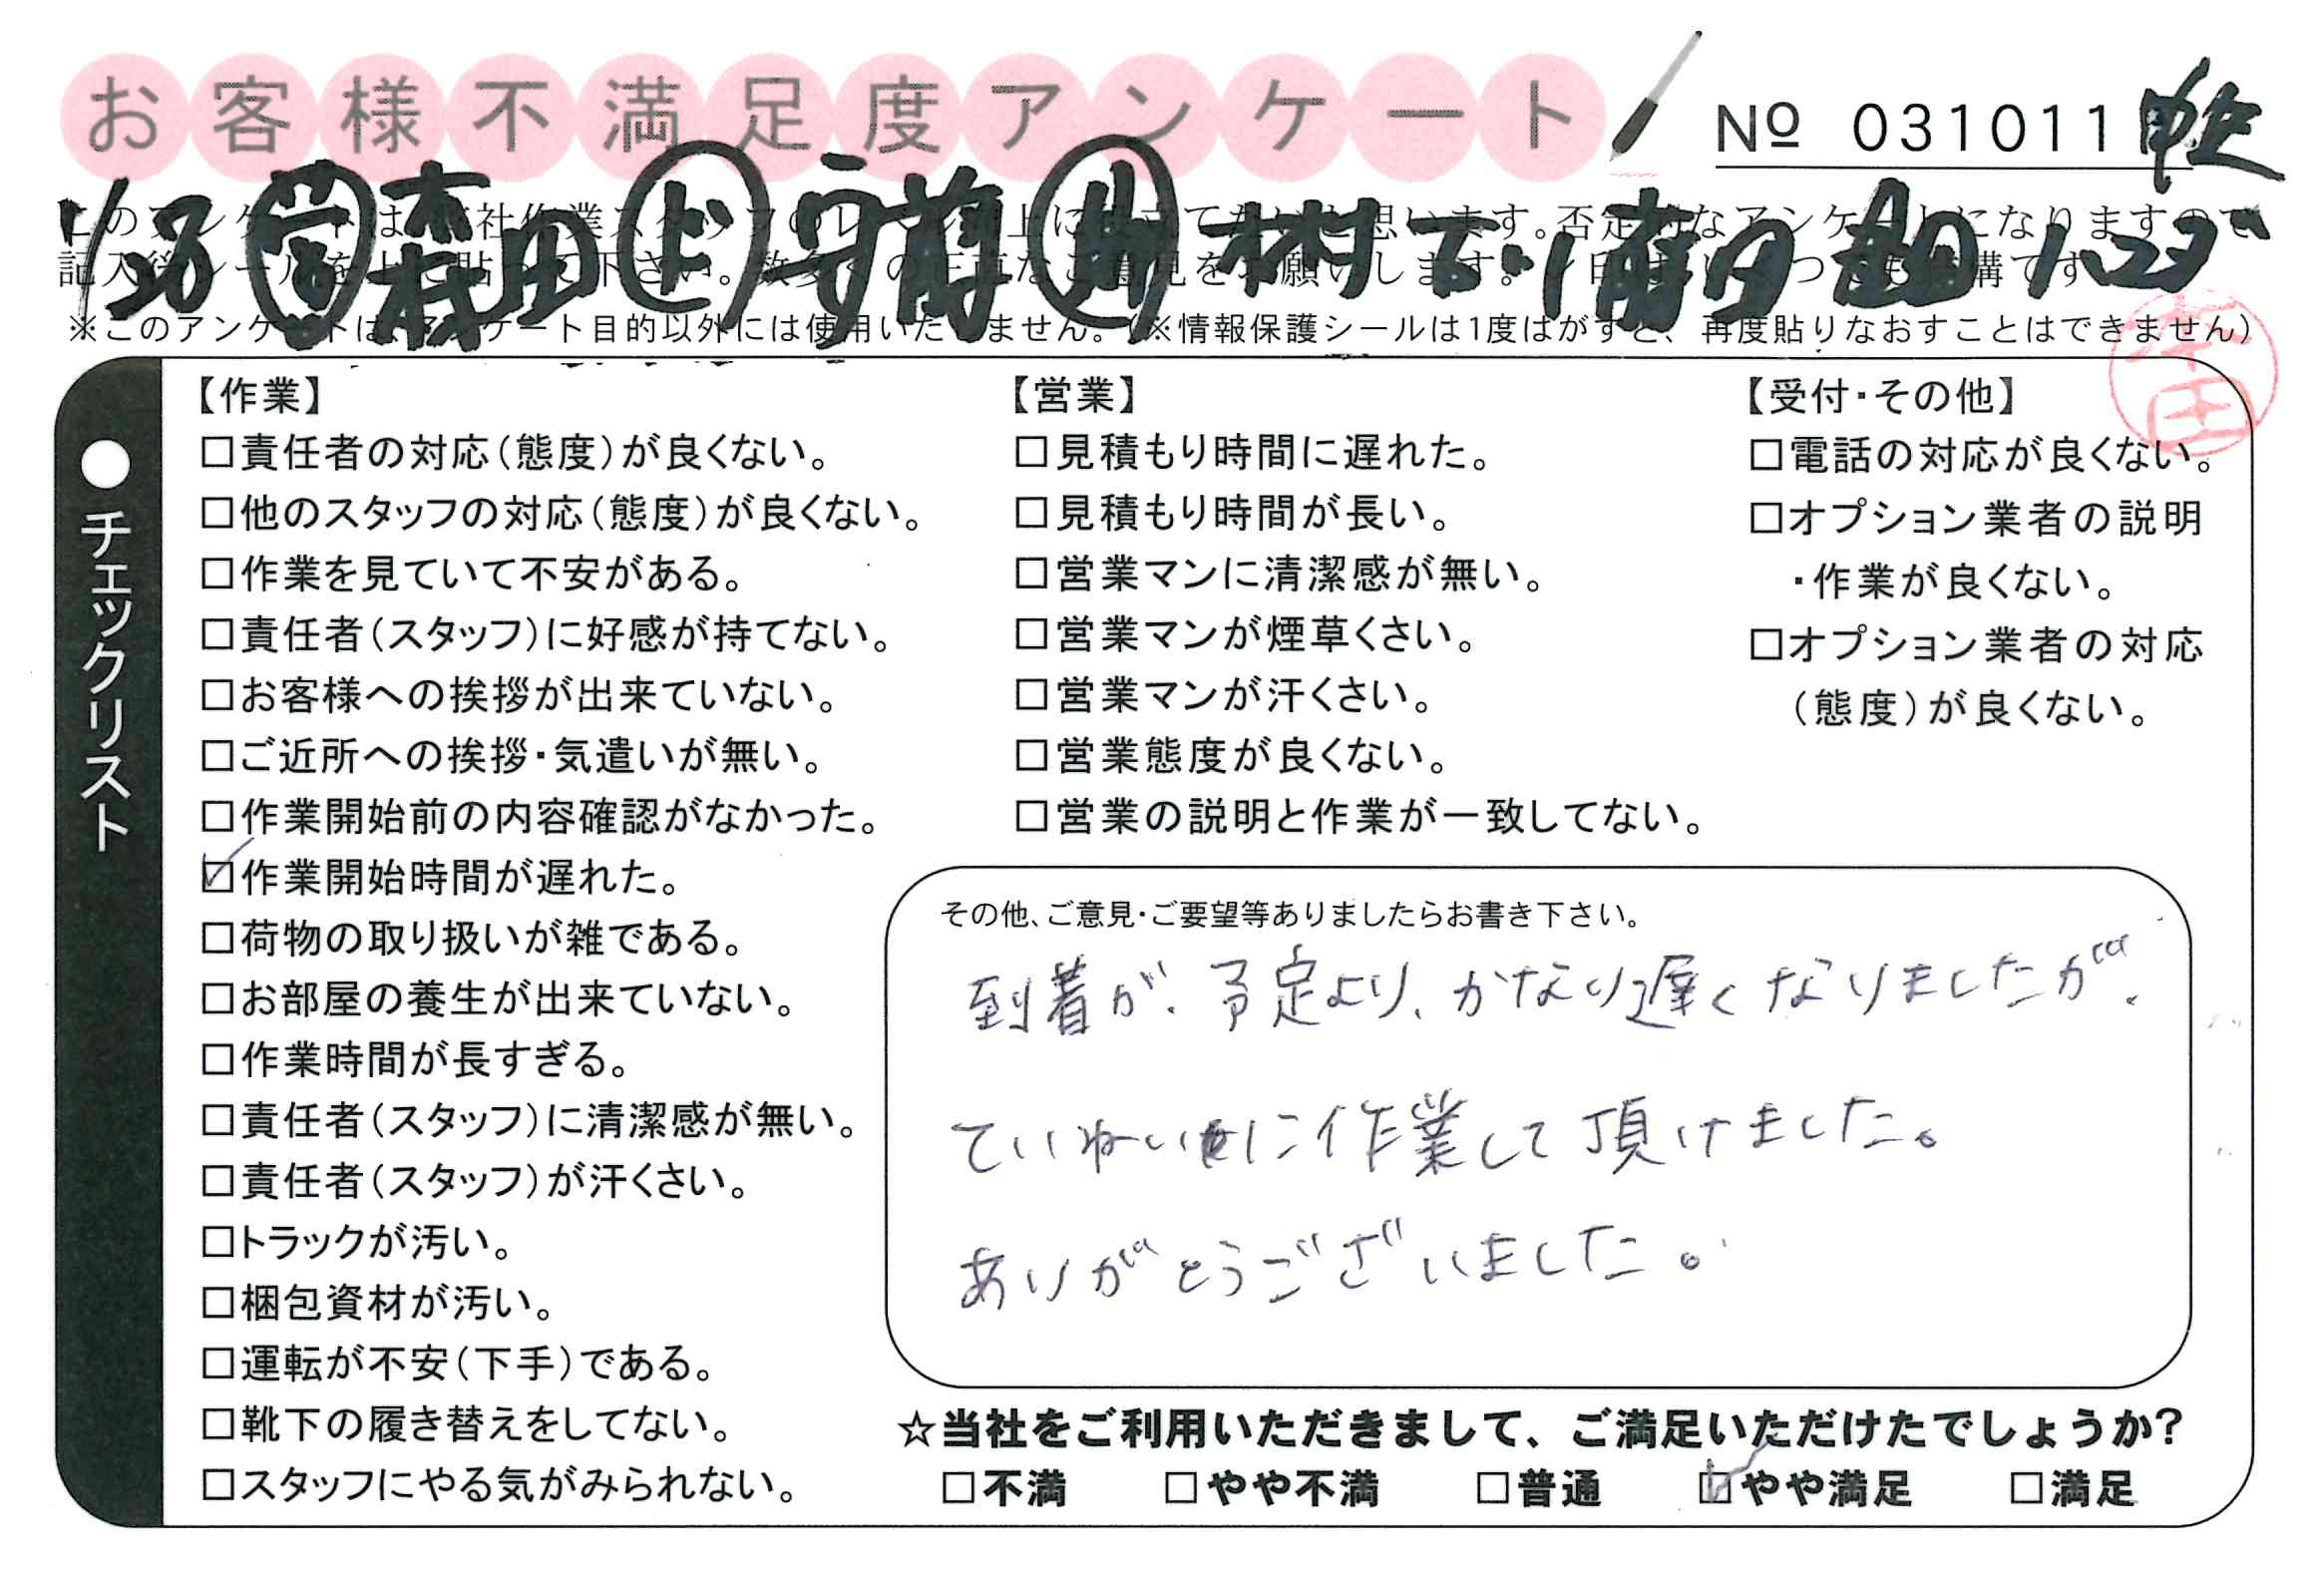 お客様不満足度アンケート
№ 031011
1/28 営 森田 ド 守前 助 木村 下川 齊夕 1.23
※このアンケートは、アンケート目的以外には使用いたしません。(※情報保護シールは1度はがすと、再度貼りなおすことはできません)
●チェックリスト
【作業】
□責任者の対応(態度)が良くない。
□他のスタッフの対応(態度)が良くない。
□作業を見ていて不安がある。
□責任者(スタッフ)に好感が持てない。
□お客様への挨拶が出来ていない。
□ご近所への挨拶・気遣いが無い。
□作業開始前の内容確認がなかった。
☑作業開始時間が遅れた。
□荷物の取り扱いが雑である。
□お部屋の養生が出来ていない。
□作業時間が長すぎる。
□責任者(スタッフ)に清潔感が無い。
□責任者(スタッフ)が汗くさい。
□トラックが汚い。
□梱包資材が汚い。
□運転が不安(下手)である。
□靴下の履き替えをしてない。
□スタッフにやる気がみられない。
【営業】
□見積もり時間に遅れた。
□見積もり時間が長い。
□営業マンに清潔感が無い。
□営業マンが煙草くさい。
□営業マンが汗くさい。
□営業態度が良くない。
□営業の説明と作業が一致してない。
【受付・その他】
□電話の対応が良くない。
□オプション業者の説明
・作業が良くない。
□オプション業者の対応
(態度)が良くない。
その他、ご意見・ご要望等ありましたらお書き下さい。
到着が、予定より、かなり遅くなりましたが、
ていねいに作業して頂けました。
ありがとうございました。
☆当社をご利用いただきまして、ご満足いただけたでしょうか?
□不満 □やや不満 □普通 ☑やや満足 □満足